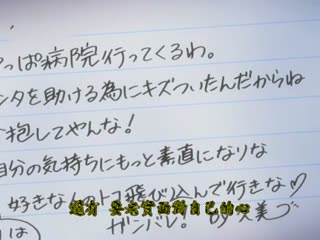 っぱ病院行ってくるわ。
ンタを助ける為にキズついたんだからね
抱してやんな!
自分の気持ちにもっと素直になりな
好きな人のトコ飛び込んで行きな♡
ガンバレ。
は
還有 要老實面對自己的心